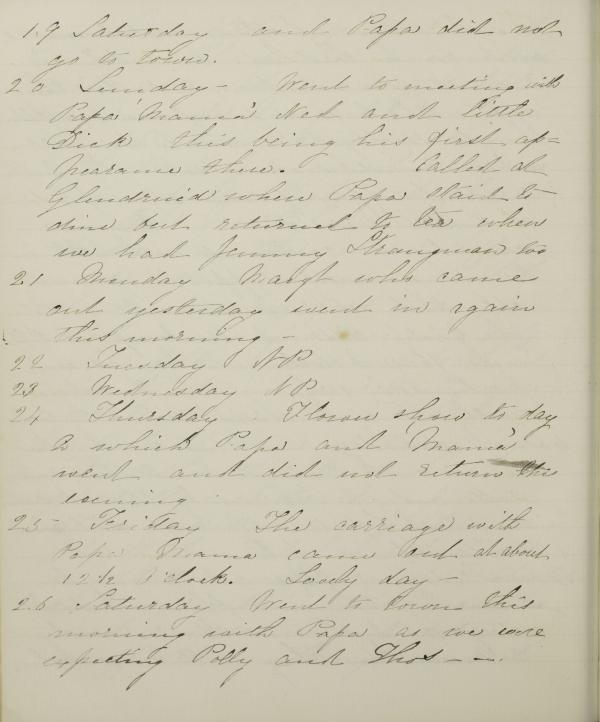 19 Saturday and Papa did not
go to town.
20 Sunday - Went to meeting with
Papa Mama Ned and little
Dick this being his first ap=
pearance there. Called at
Glendruid when Papa staid to
dine but returned to tea when
we had Jemmy Strangman too
21 Munday Margt who came
out yesterday went in again
this morning -
22 Tuesday NP
23 Wednesday NP
24 Thursday Flower show to day
to which Papa and Mama
went and did not return this
evening
25 Friday The carriage with
Papa Mama came out at about
12 1/2 o'clock. Lovely day -
26 Saturday Went to town this
morning with Papa as we were
expecting Polly and Thos - -.